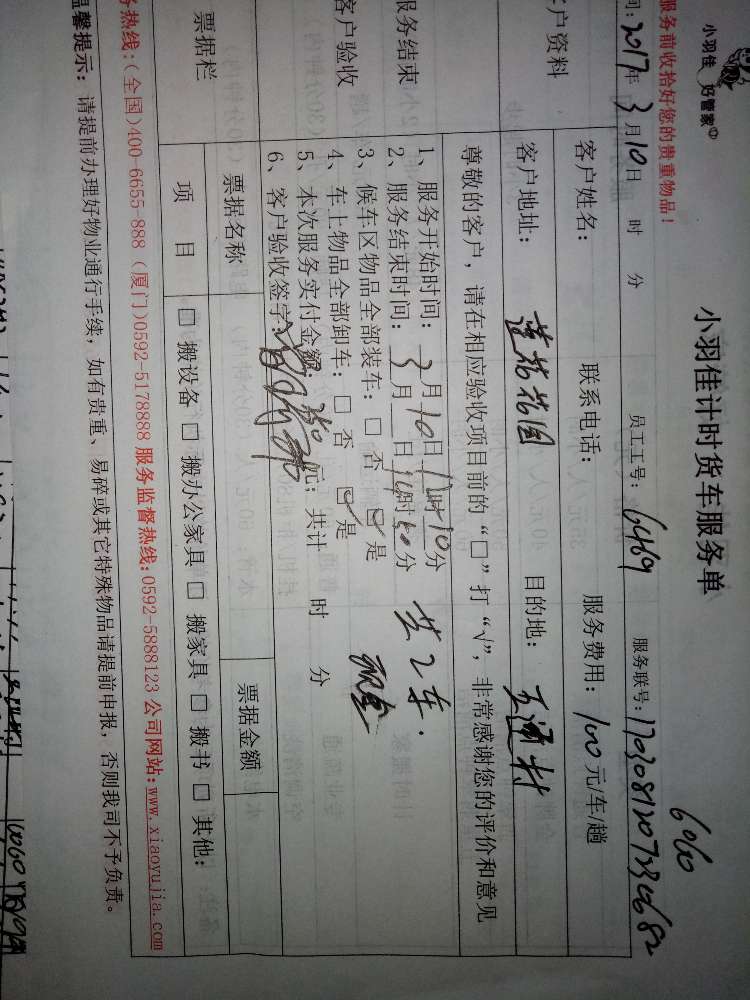 小羽佳 好管家
小羽佳计时货车服务单
6060
服务前收拾好您的贵重物品!
间:2017年3月10日 时 分 员工工号:6469 服务联号:
客户资料
客户姓名: 联系电话: 服务费用:100元/车/趟
客户地址:莲花花园 目的地:
尊敬的客户,请在相应验收项目前的“□”打“√”,非常感谢您的评价和意见
服务结束
客户验收
1、服务开始时间:3月10日 时10分
2、服务结束时间:3月 日 14时50分 共2车.
3、候车区物品全部装车:□否 ☑是
4、车上物品全部卸车:□否 ☑是
5、本次服务实付金额: 元;共计 时 分
6、客户验收签字:
票据栏
票据名称 票据金额
项 目 □搬设备 □搬办公家具 □搬家具 □搬书 □其他:
务热线:(全国)400-6655-888 (厦门)0592-5178888 服务监督热线:0592-5888123 公司网站:www.xiaoyujia.com
温馨提示:请提前办理好物业通行手续,如有贵重、易碎或其它特殊物品请提前申报,否则我司不予负责。